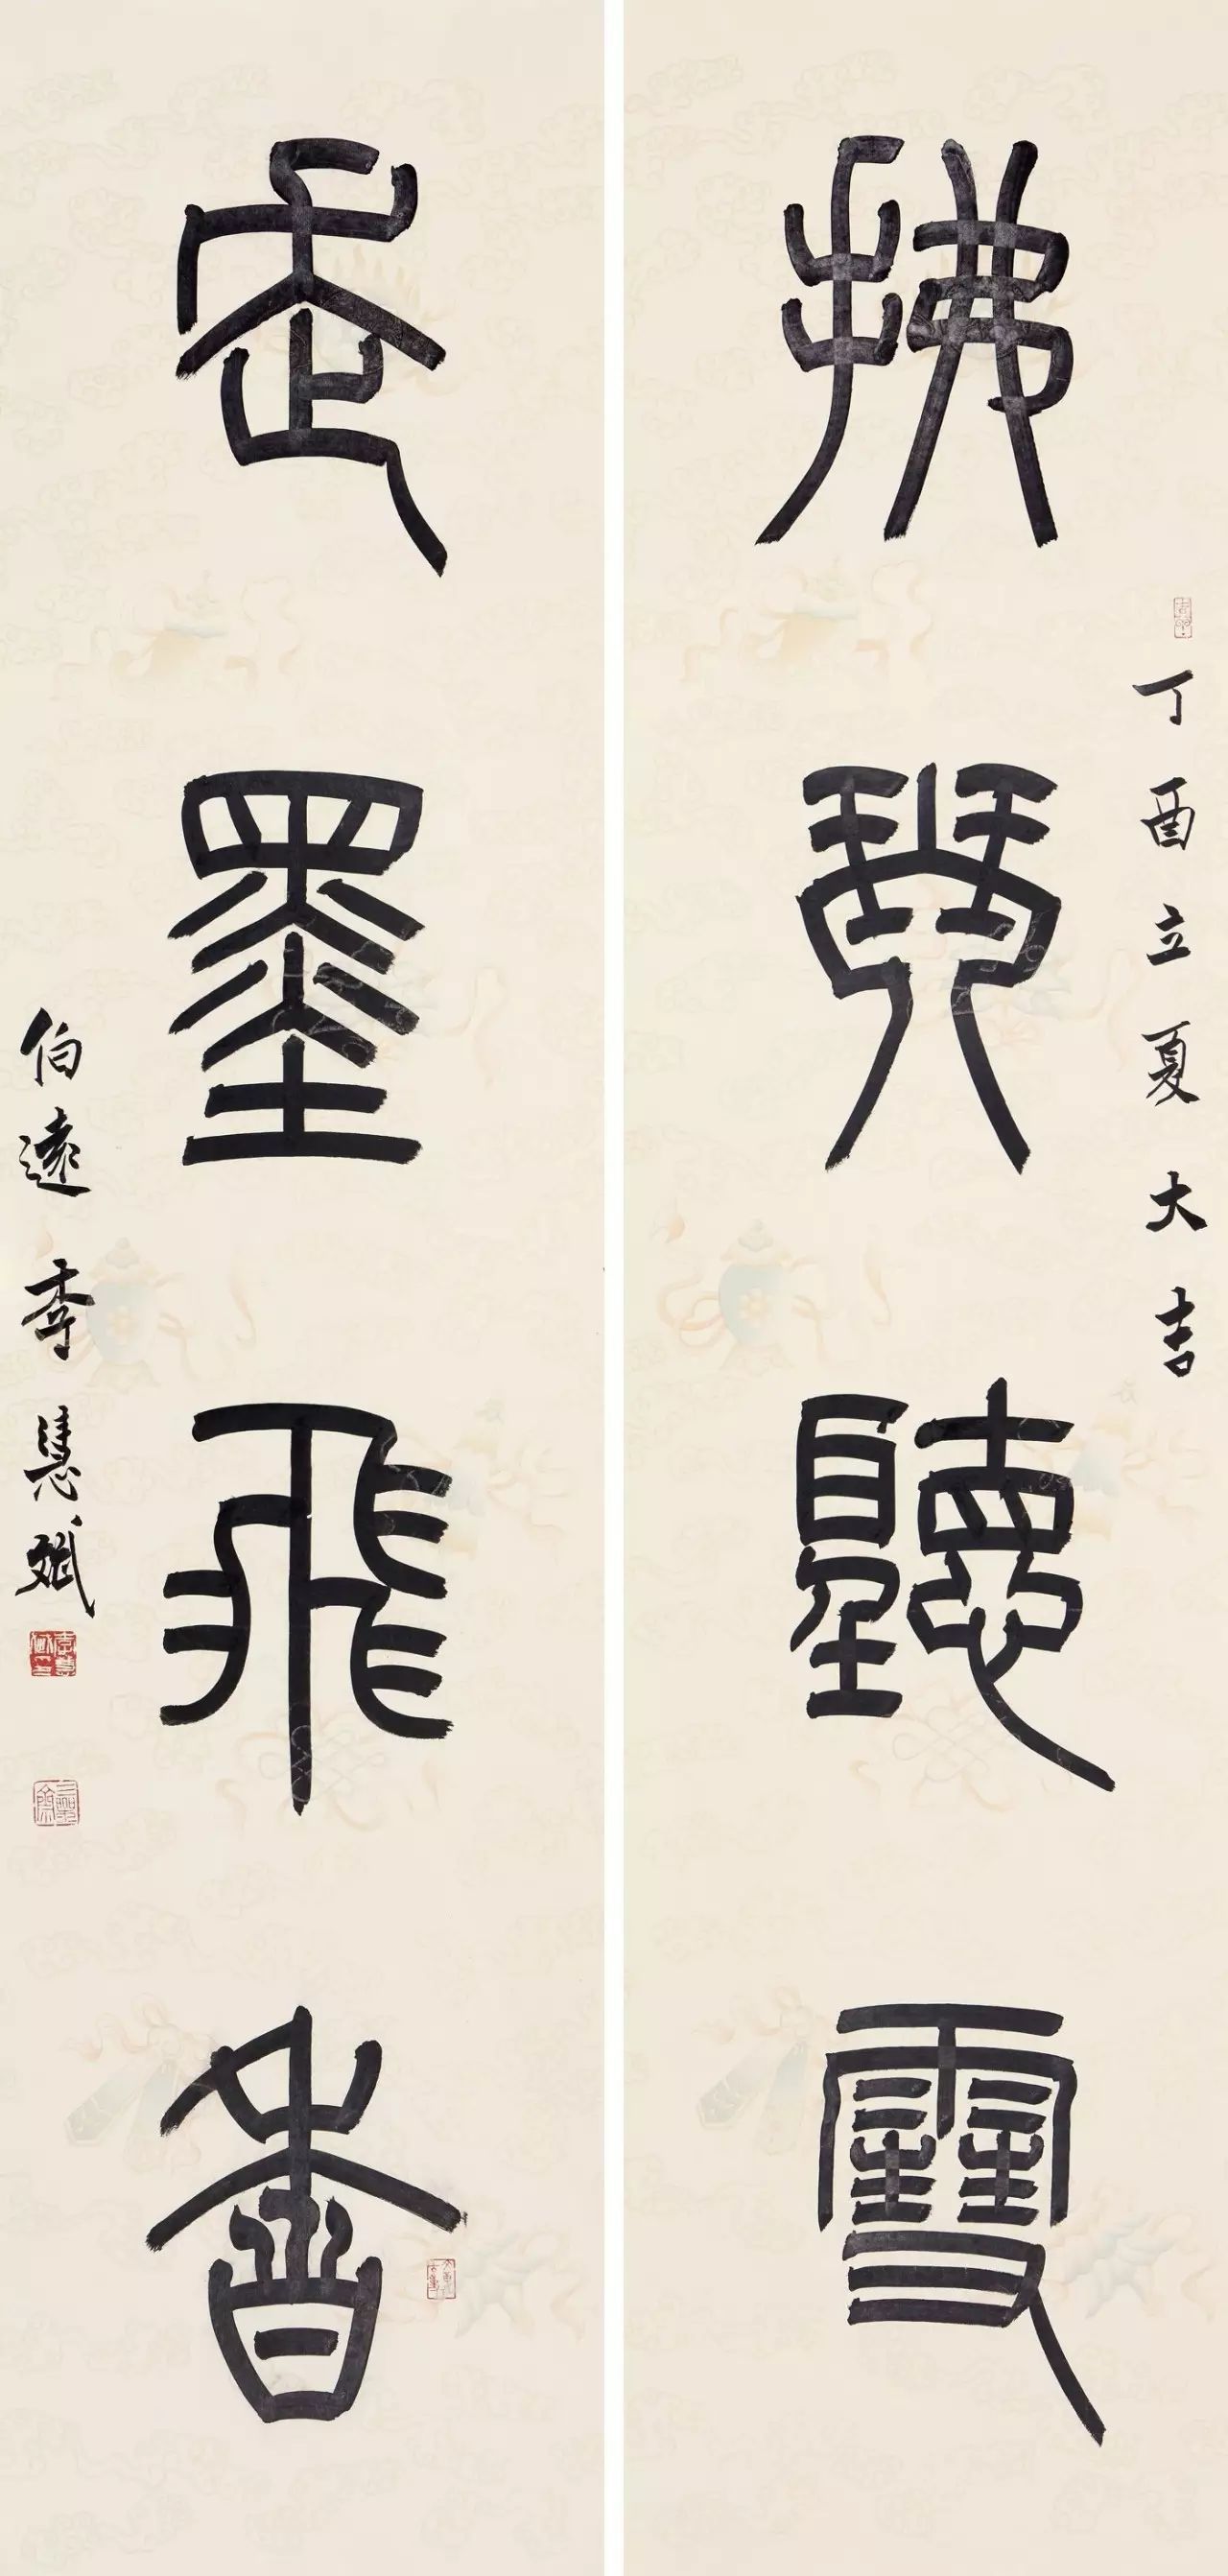 拂琴聽雪
丁酉立夏大吉
走墨飛香
伯遠李慧斌